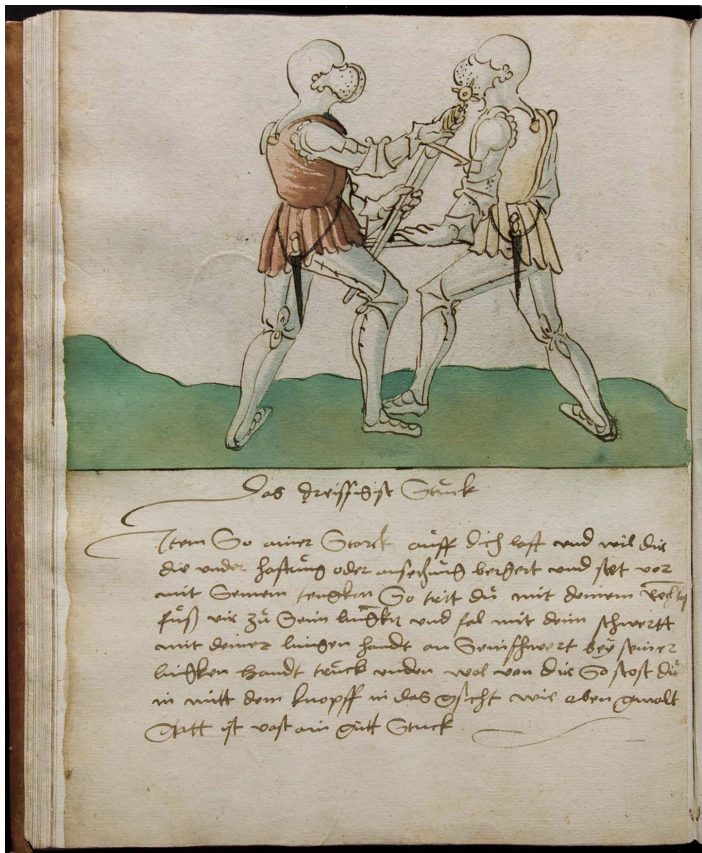 Das dreissigist Stuck
Item So ainer Starck auff dich last und wil dir
die under haltung oder ansetzung und stet vor
mit Seinem lingken So tritt du mit deinem
fuß vir zu Sein lingken und fal mit dein schwertt
mit deiner lingen handt an Sein schwert bey seiner
lingken Handt truck unden wol von dir So stost du
in mitt dem knopff in das gsicht wie oben gmalt
Statt ist vast ain gutt Stuck